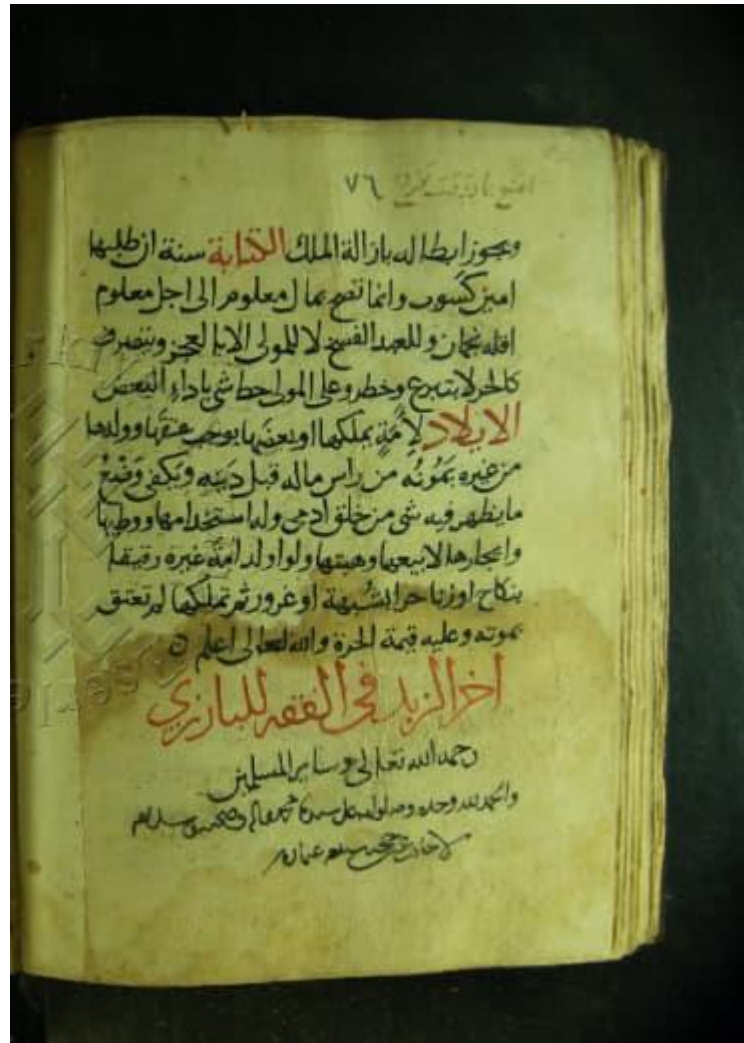 ٧٦
ويجوز ابطاله بازالة الملك الكتابة سنة ان طلبها
امين كسوب وانما تصح بمال معلوم الى اجل معلوم
اقله نجمان وللعبد الفسخ لا للمولى الا بالعجز ويتصرف
كالحر لا بتبرع وخطر وعلى المولى حط شي باداء البعض
الايلاد لأمة يملكها او بعضها يوجب عتقها وولدها
من غيره بموته من راس ماله قبل دينه ويكفى وضع
ما يظهر فيه شي من خلق ادمى وله استخدامها ووطيها
وايجارها لا بيعها وهبتها ولو اولد امة غيره رقيقا
بنكاح او زنا حرا لشبهة او غرور ثم تملكها لم تعتق
بموته وعليه قيمة الحرة والله تعالى اعلم
اخر الزبد فى الفقه للبارزي
رحمه الله تعالى وساير المسلمين
والحمد لله وحده وصلواته على سيدنا محمد واله وصحبه وسلامه